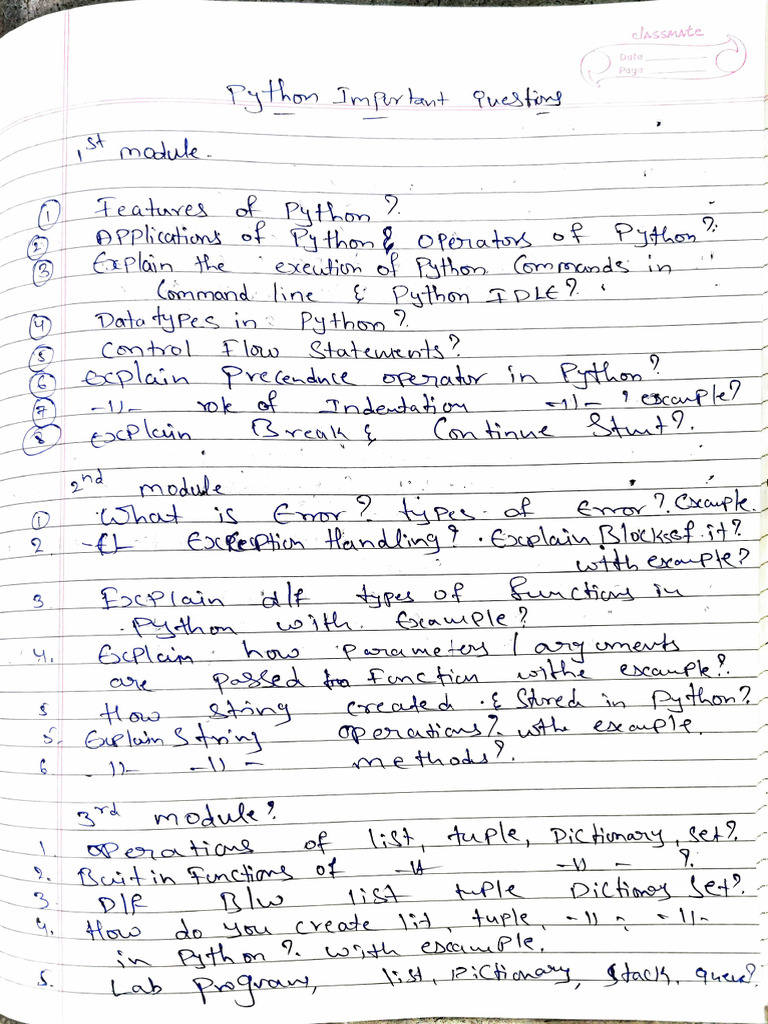 classmate
Date
Page
Python Important Questions
1st module.
① Features of Python?
② Applications of Python & operators of Python?
③ Explain the exection of Python Commands in
Command line & Python IDLE?
④ Datatypes in Python?
⑤ Control Flow Statements?
⑥ explain Precenduce operator in Python?
⑦ -11- role of Indentation -11- ' example?
⑧ explain Break & Continue Stmt?
2nd module
① What is Error? types of Error? Example.
2 -11- Exception Handling? Explain Blocks of it?
with example?
3 Explain d/f types of functions in
Python with Example?
4. Explain how parameters / arguments
are passed to Function withe example?
5 How string created & Stored in Python?
5. Explain String operations? withe example.
6 -11- -11- methods?
3rd module?
1. operations of list, tuple, Dictionary, set?
2. Buitin Functions of -11- -11- ?
3. D/f B/w list tuple Dictionary Set?
4. How do you create list, tuple, -11- -11-
in Python? with example.
5. Lab Program, list, Dictionary, stack, queue?